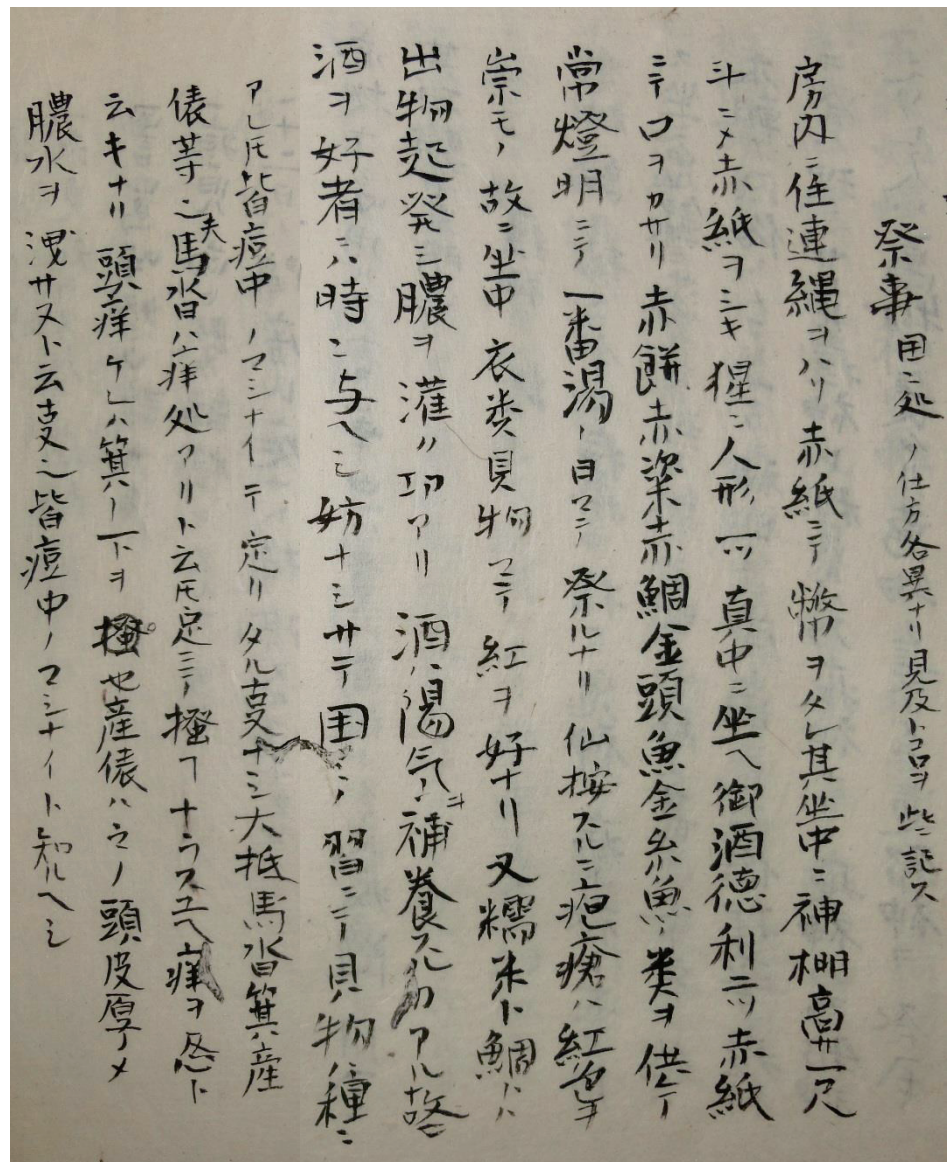 祭事 国処ノ仕方各異ナリ見及トコロヲ些記ス
房内ニ住連縄ヲハリ赤紙ニテ幣ヲタレ其坐中ニ神棚高サ一尺
斗ニメ赤紙ヲシキ猩ニ人形一ツ真中ニ坐ヘ御酒徳利二ツ赤紙
ニテ口ヲカサリ赤餅赤粢赤鯛金頭魚金糸魚ノ类ヲ供テ
常燈明ニテ一番湯ノ日マテ祭ルナリ 仙按スルニ疱瘡ハ紅色ヲ
崇モノ故ニ坐中衣类貝物マテ紅ヲ好ナリ又糯米ト鯛トハ
出物起発シ膿ヲ灌ノ功アリ 酒ハ陽气ヲ補養スル力アル故ニ
酒ヲ好者ニハ時ニ与ヘシ妨ナシサテ国ニノ習ニテ貝物ハ種ニ
アレ𪜈皆痘中ノマシナイニテ定リタル支ナシ大抵馬沓箕産
俵等也夫馬沓ハ痒処アリト云𪜈足ニテ搔ヿナラスユヘ痒ヲ忍ト
云キナリ 頭痒ケレハ箕ノ下ヲ搔也産俵ハウノ頭皮厚メ
膿水ヲ洩サヌト云支也皆痘中ノマシナイト知ルヘシ